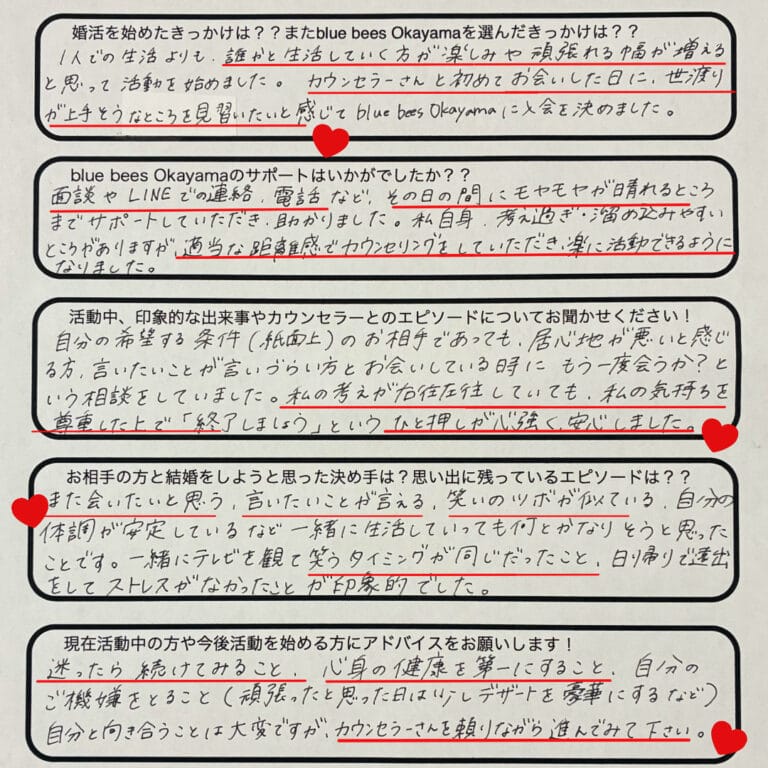 婚活を始めたきっかけは？？またblue bees Okayamaを選んだきっかけは？？
1人での生活よりも、誰かと生活していく方が楽しみや頑張れる幅が増える
と思って活動を始めました。カウンセラーさんと初めてお会いした日に、世渡り
が上手そうなところを見習いたいと感じてblue bees Okayamaに入会を決めました。
blue bees Okayamaのサポートはいかがでしたか？？
面談やLINEでの連絡、電話など、その日の間にモヤモヤが晴れるところ
までサポートしていただき、助かりました。私自身、考え過ぎ・溜め込みやすい
ところがありますが、適当な距離感でカウンセリングをしていただき、楽に活動できるように
なりました。
活動中、印象的な出来事やカウンセラーとのエピソードについてお聞かせください！
自分の希望する条件(紙面上)のお相手であっても、居心地が悪いと感じ
る方、言いたいことが言いづらい方とお会いしている時にもう一度会うか？と
いう相談をしていました。私の考えが右往左往していても、私の気持ちを
尊重した上で「終了しましょう」というひと押しが心強く、安心しました。
お相手の方と結婚をしようと思った決め手は？思い出に残っているエピソードは？？
また会いたいと思う、言いたいことが言える、笑いのツボが似ている、自分の
体調が安定しているなど一緒に生活していっても何とかなりそうと思った
ことです。一緒にテレビを観て笑うタイミングが同じだったこと、日帰りで遠出
をしてストレスがなかったことが印象的でした。
現在活動中の方や今後活動を始める方にアドバイスをお願いします！
迷ったら続けてみること、心身の健康を第一にすること、自分の
ご機嫌をとること(頑張ったと思った日は少しデザートを豪華にするなど)
自分と向き合うことは大変ですが、カウンセラーさんを頼りながら進んでみて下さい。